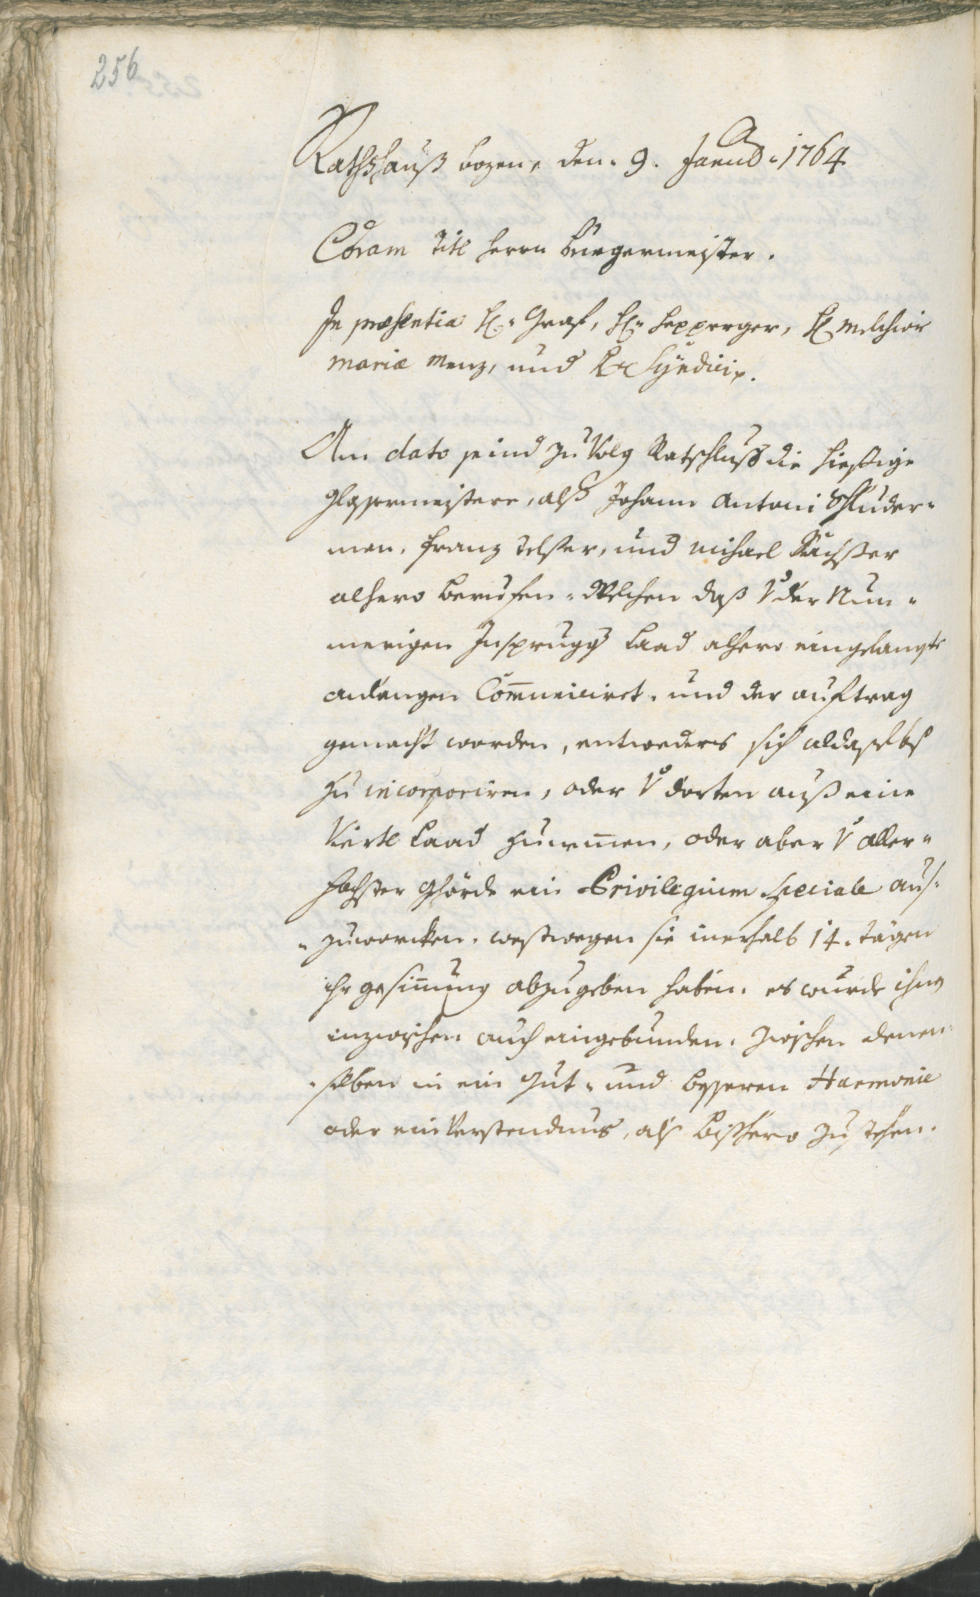 256
Rathshauß bozen, den. 9. Jaenb. 1764
Coram Titl herrn burgermeister.
In præsentia H: Graf, H: Hepperger, H Melchior
Maria Menz, und Syndici.
An dato seind zu Volg Ratschluß die hiessige
glasermeistere, alß Johann Antoni Schluder=
man, Franz telser, und Michael
alhero beruefen. Welchen daß v der Nun=
merigen Insprugg Laad alhero eingelangte
anlangen Com̅uniciret. und der auftrag
gemacht worden, entweders sich aldasselbst
zu incorporiren, oder v dorten auß eine
Viertl Laad zunem̅en, oder aber v aller=
höchster ghörde ein Privilegium Speciale aus=
=zuworcken. westwegen sie inerhalb 14. tägen
ihr gesin̅ung abzugeben haben. es wurde ihnen
inzwischen auch eingebunden. zwischen denen=
=selben in ein gut= und bessern Harmonie
oder einverstendnus, als bishero zu stehen.